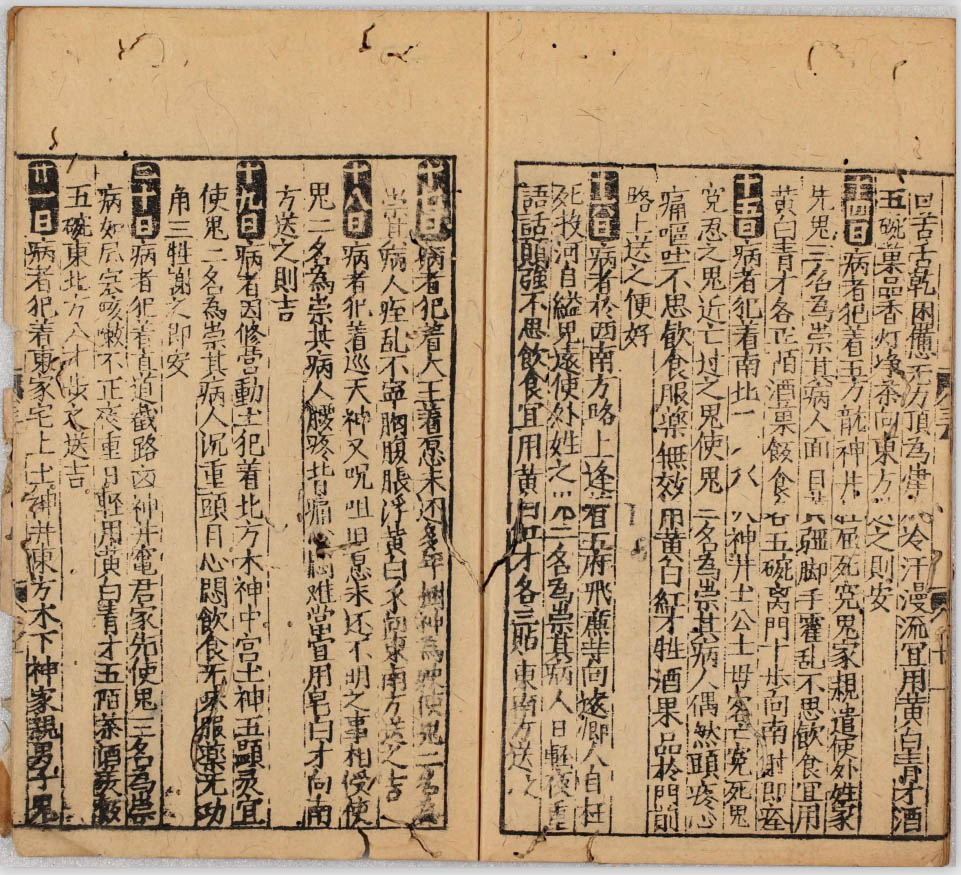 口苦舌乾困憊无力頂為 冷汗漫流宜用黄白青才酒
五碗果品香灯净茶向東方 之則安
十四日病者犯着五方龍神井 死冤鬼家親遣使外姓家
先鬼三名為祟其病人面目 脚手霍乱不思飲食宜用
黄白青才各五陌酒菓飯食各五碗离門十步向南 即
十五日病者犯着南北 神井土公土母客亡冤死鬼
冤忍之鬼近亡过之鬼使鬼二名為祟其病人偶然頭疼心
痛嘔吐不思飲食服藥無効用黄白紅才牲酒果品於門前
路上送之便好
十六日病者於西南方路上逢着五府飛廉等 遠鄉人自枉
死投河自縊鬼遂使外姓之鬼二名為祟其病人日輕夜重
語話顛強不思飲食宜用黄白紅才各三貼東南方送之
十七日病者犯着大王舊愿未还多年 神為 使鬼二名為
病人 乱不寧胸腹脹浮黄白才 東南方送之吉
十八日病者犯着巡天神又咒咀旧愿未还不明之事相侵使
鬼二名為祟其病人腰疼背痛心悶难當宜用皂白才向南
方送之則吉
十九日病者因修营動土犯着北方木神中宫土神五顕灵宜
使鬼二名為祟其病人沉重頭目心悶飲食无味服藥无功
用三牲謝之即安
二十日病者犯着直道截路凶神井竈君家先使鬼三名為祟
病如 寒咳嗽不正夜重日輕用黄白青才五陌茶酒羙飯
五碗東北方八十步之送吉
廿一日病者犯着東家宅上土神井東方木下神家親男子鬼